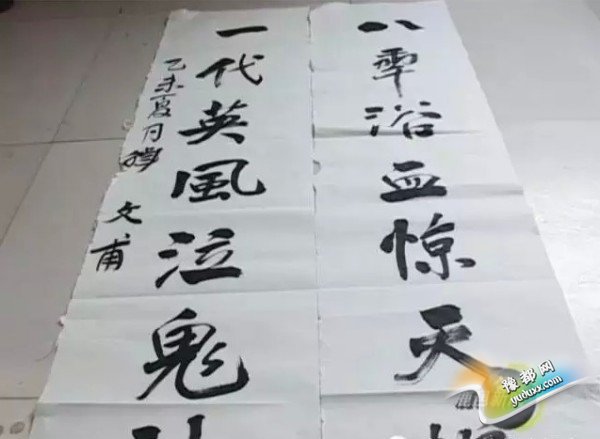 八年浴血惊天
一代英風泣鬼
乙未夏月撰
文甫
豫都网
yuduxx.com